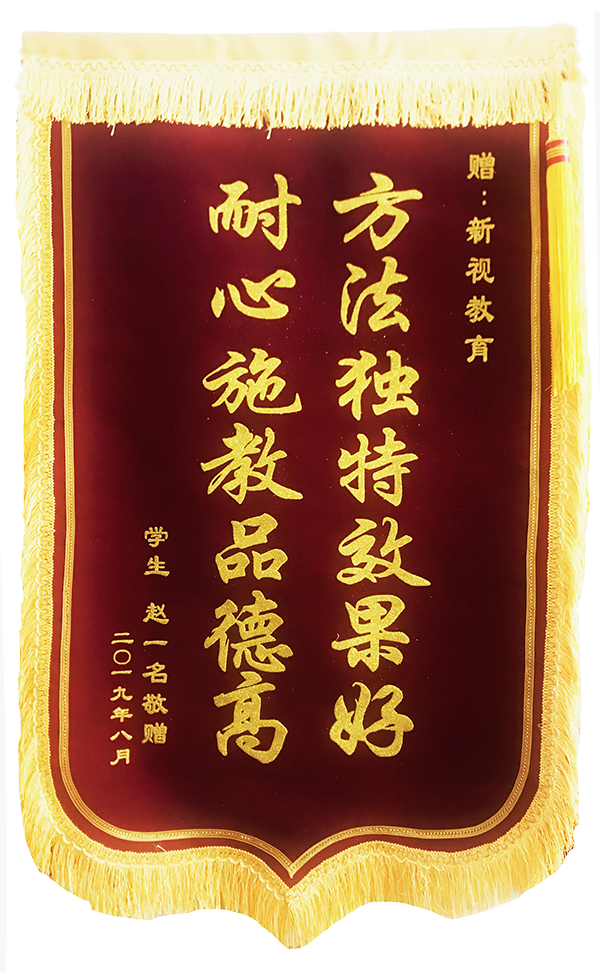 赠：新视教育
方法独特效果好
耐心施教品德高
学生 赵一名敬赠
二〇一九年八月